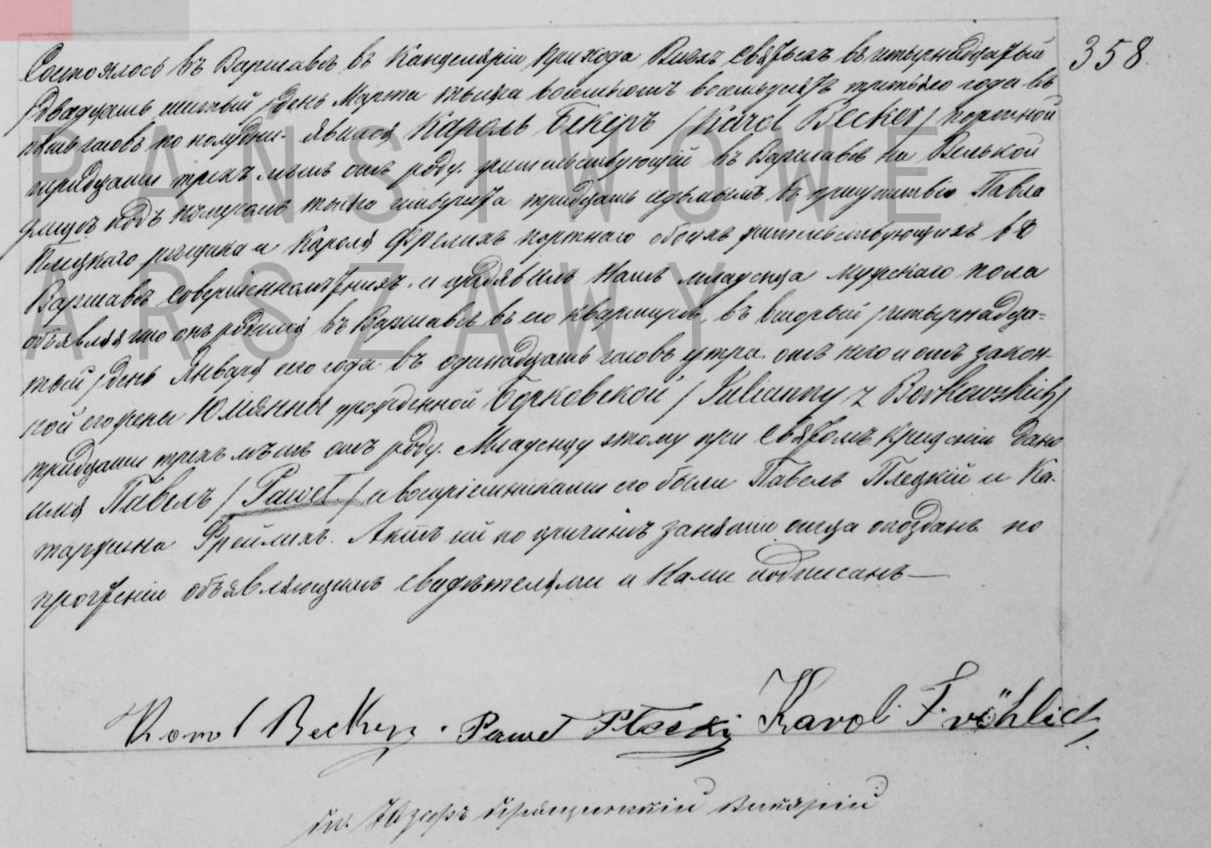 358
Состоялось въ Варшавѣ въ Канцеляріи прихода Всѣхъ Святыхъ четырнадцатый
/двадцать шестый/ день Марта тысяча восемьсотъ восемьдесятъ третьяго года въ
часовъ по полудни. явился Кароль Бекеръ /Karol Becker/ портной
тридцати трехъ лѣтъ отъ роду. жительствующій въ Варшавѣ на Велькой
улицѣ подъ номеромъ тысяча тридцать седьмымъ въ присутствіи Павла
Плецкаго рѣзчика и Кароля Фрелихъ портнаго обоихъ жительствующихъ въ
Варшавѣ совершеннолѣтнихъ. и предъявилъ Намъ младенца мужскаго пола
объявляя что онъ родился въ Варшавѣ въ его квартирѣ, въ вторый /четырнадца-
тый/ день Января сего года въ одинадцать часовъ утра. отъ него и отъ закон
ной его жены Юліянны урожденной Борковской /Julianny z Borkowskich/
тридцати трехъ лѣтъ отъ роду. Младенцу этому при Святомъ Крещеніи дано
имя Павелъ /Paweł/ а воспріемниками его были Павелъ Плецкій и Ка-
таржина Фрейлихъ. Актъ сей по причинѣ занятій отца опозданъ по
прочтеніи объявляющимъ свидѣтелями и Нами подписанъ—
Karol Becker. Paweł Płecki Karol Fröhlich